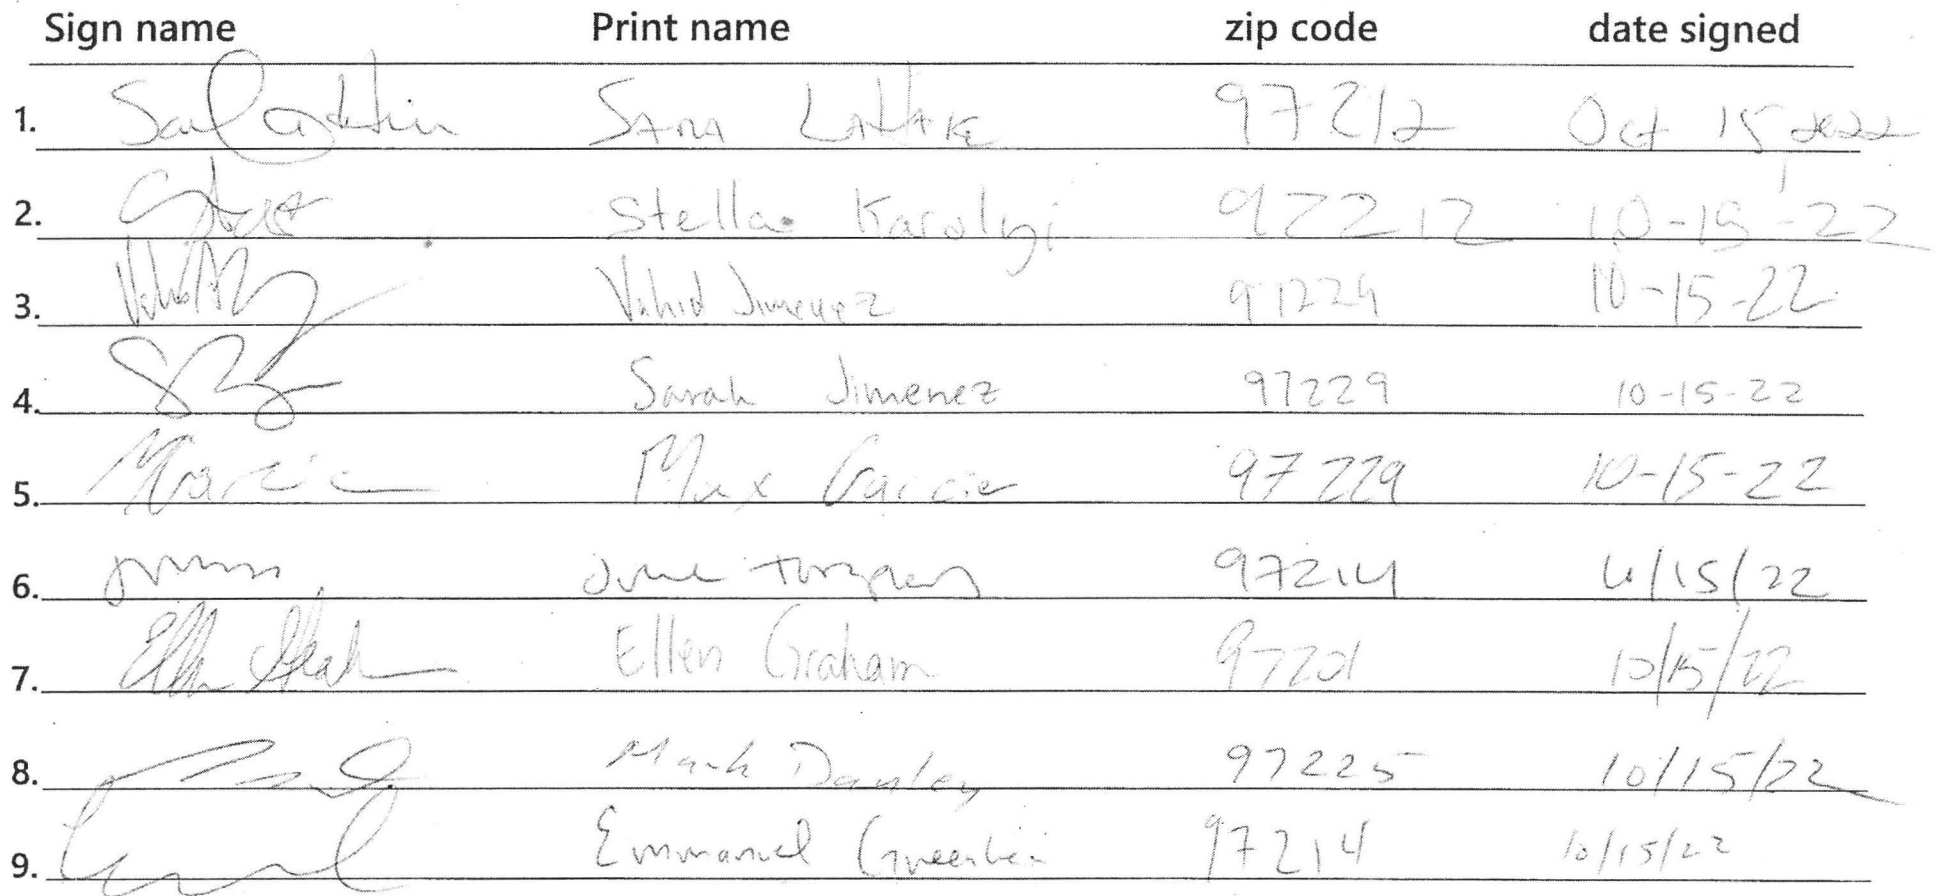 Sign name Print name zip code date signed
1. Sara LaHaie 97212 Oct 15 2022
2. Stella Karolyi 97212 10-15-22
3. Vahid Jimenez 97229 10-15-22
4. Sarah Jimenez 97229 10-15-22
5. Garcia Max Garcia 97229 10-15-22
6. 97214 /15/22
7. Ellen Graham Ellen Graham 97201 10/15/22
8. Mark Danley 97225 10/15/22
9. Emmanuel 97214 10/15/22